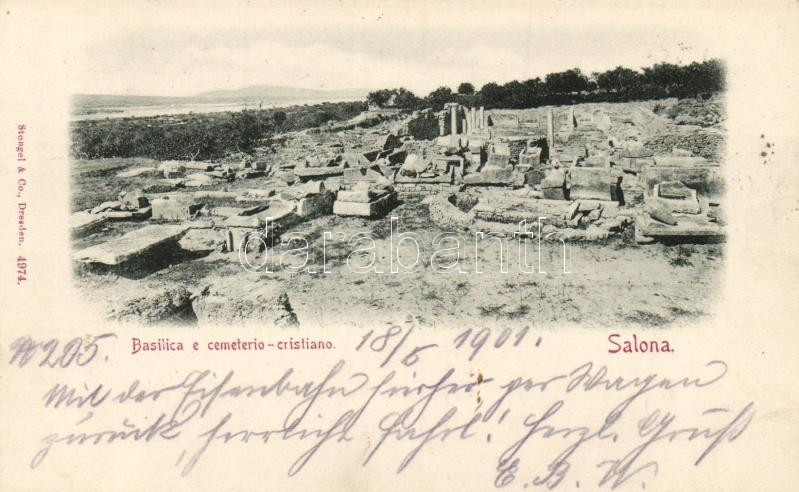 Stengel & Co., Dresden. 4974.
darabanth
Basilica e cemeterio-cristiano.
Salona.
N 205. 18/5 1901.
Mit der Eisenbahn hierher per Wagen
zurück, herrlich Fahrt! Herzl. Gruß
E. B. W.